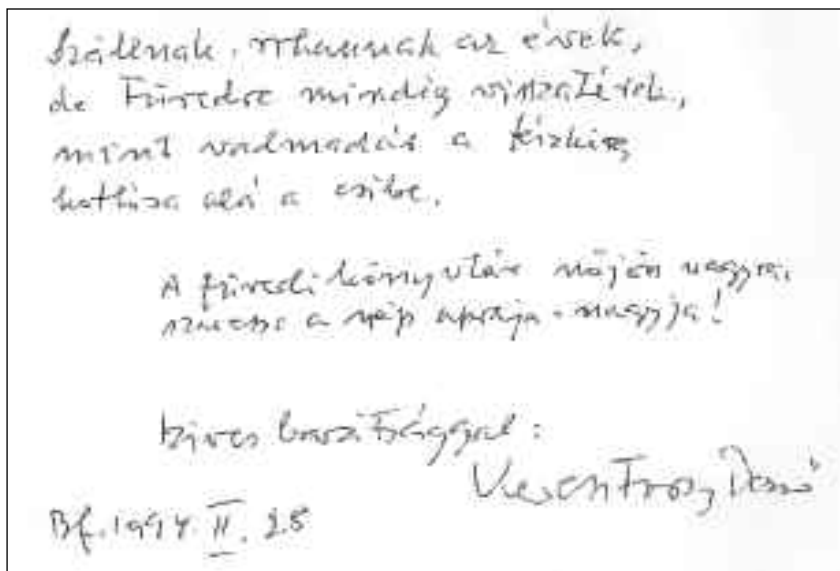 Szállnak, rohannak az évek,
de Füredre mindig visszatérek,
mint vadmadár a fészkire,
kotlósa alá a csibe.
A füredi könyvtár nőjön nagyra,
szeresse a nép apraja-nagyja!
Szíves barátsággal:
Keresztury Dezső
Bf. 1994. II. 25